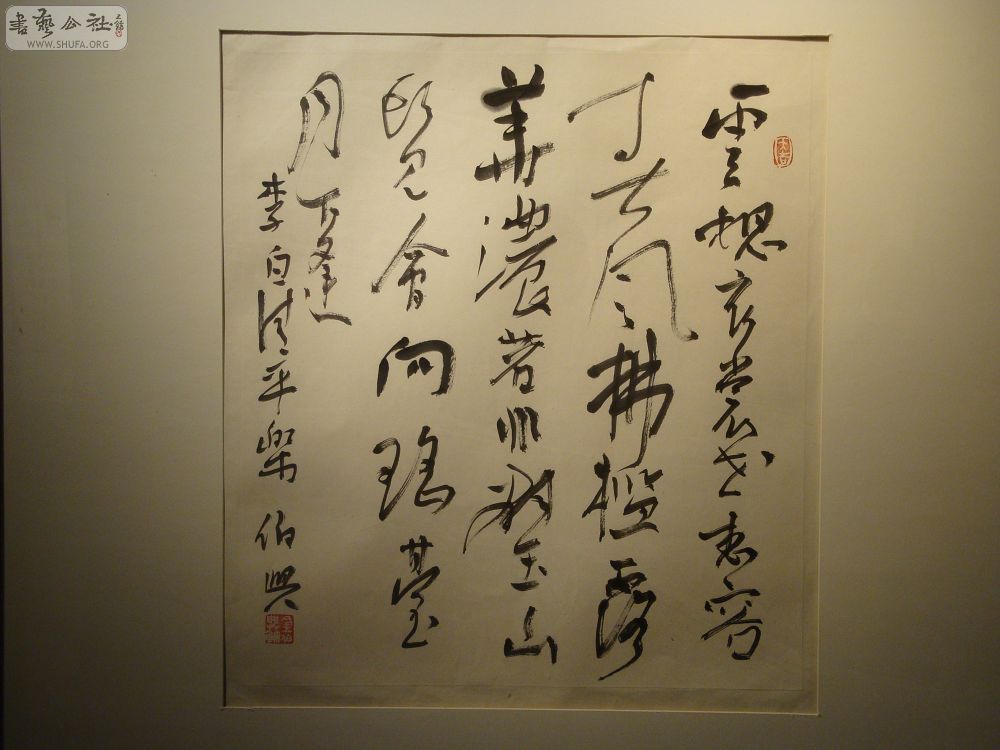 書藝公社
WWW.SHUFA.ORG
雲想衣裳花想容
春風拂檻露
華濃若非群玉山
頭見會向瑤臺
月下逢
李白清平樂 伯興